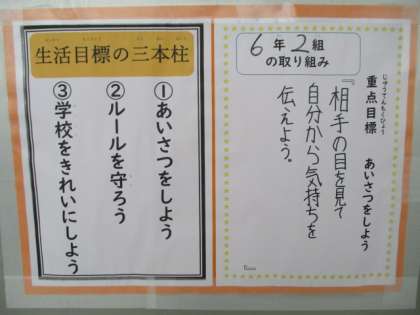 6年2組
の取り組み
重点目標
じゅうてんもくひょう
あいさつをしよう
『相手の目を見て
自分から気持ちを
伝えよう。
生活目標の三本柱
①あいさつをしよう
②ルールを守ろう
③学校をきれいにしよう